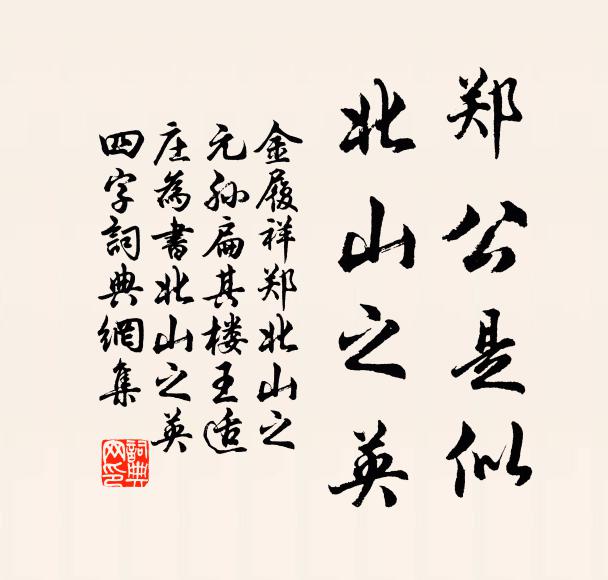 郑公是似
北山之英
金履祥郑北山之
元孙扁其楼王适
庄為書北山之英
四字詞典網集
詞典
网印